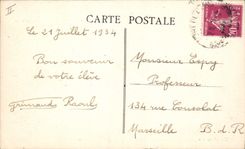 II
CARTE POSTALE
Le 21 Juillet 1934
Bon souvenir
de votre élève
Grimaud Raoul
Monsieur Espy
Professeur
134 rue Consolat
Marseille B. d. R